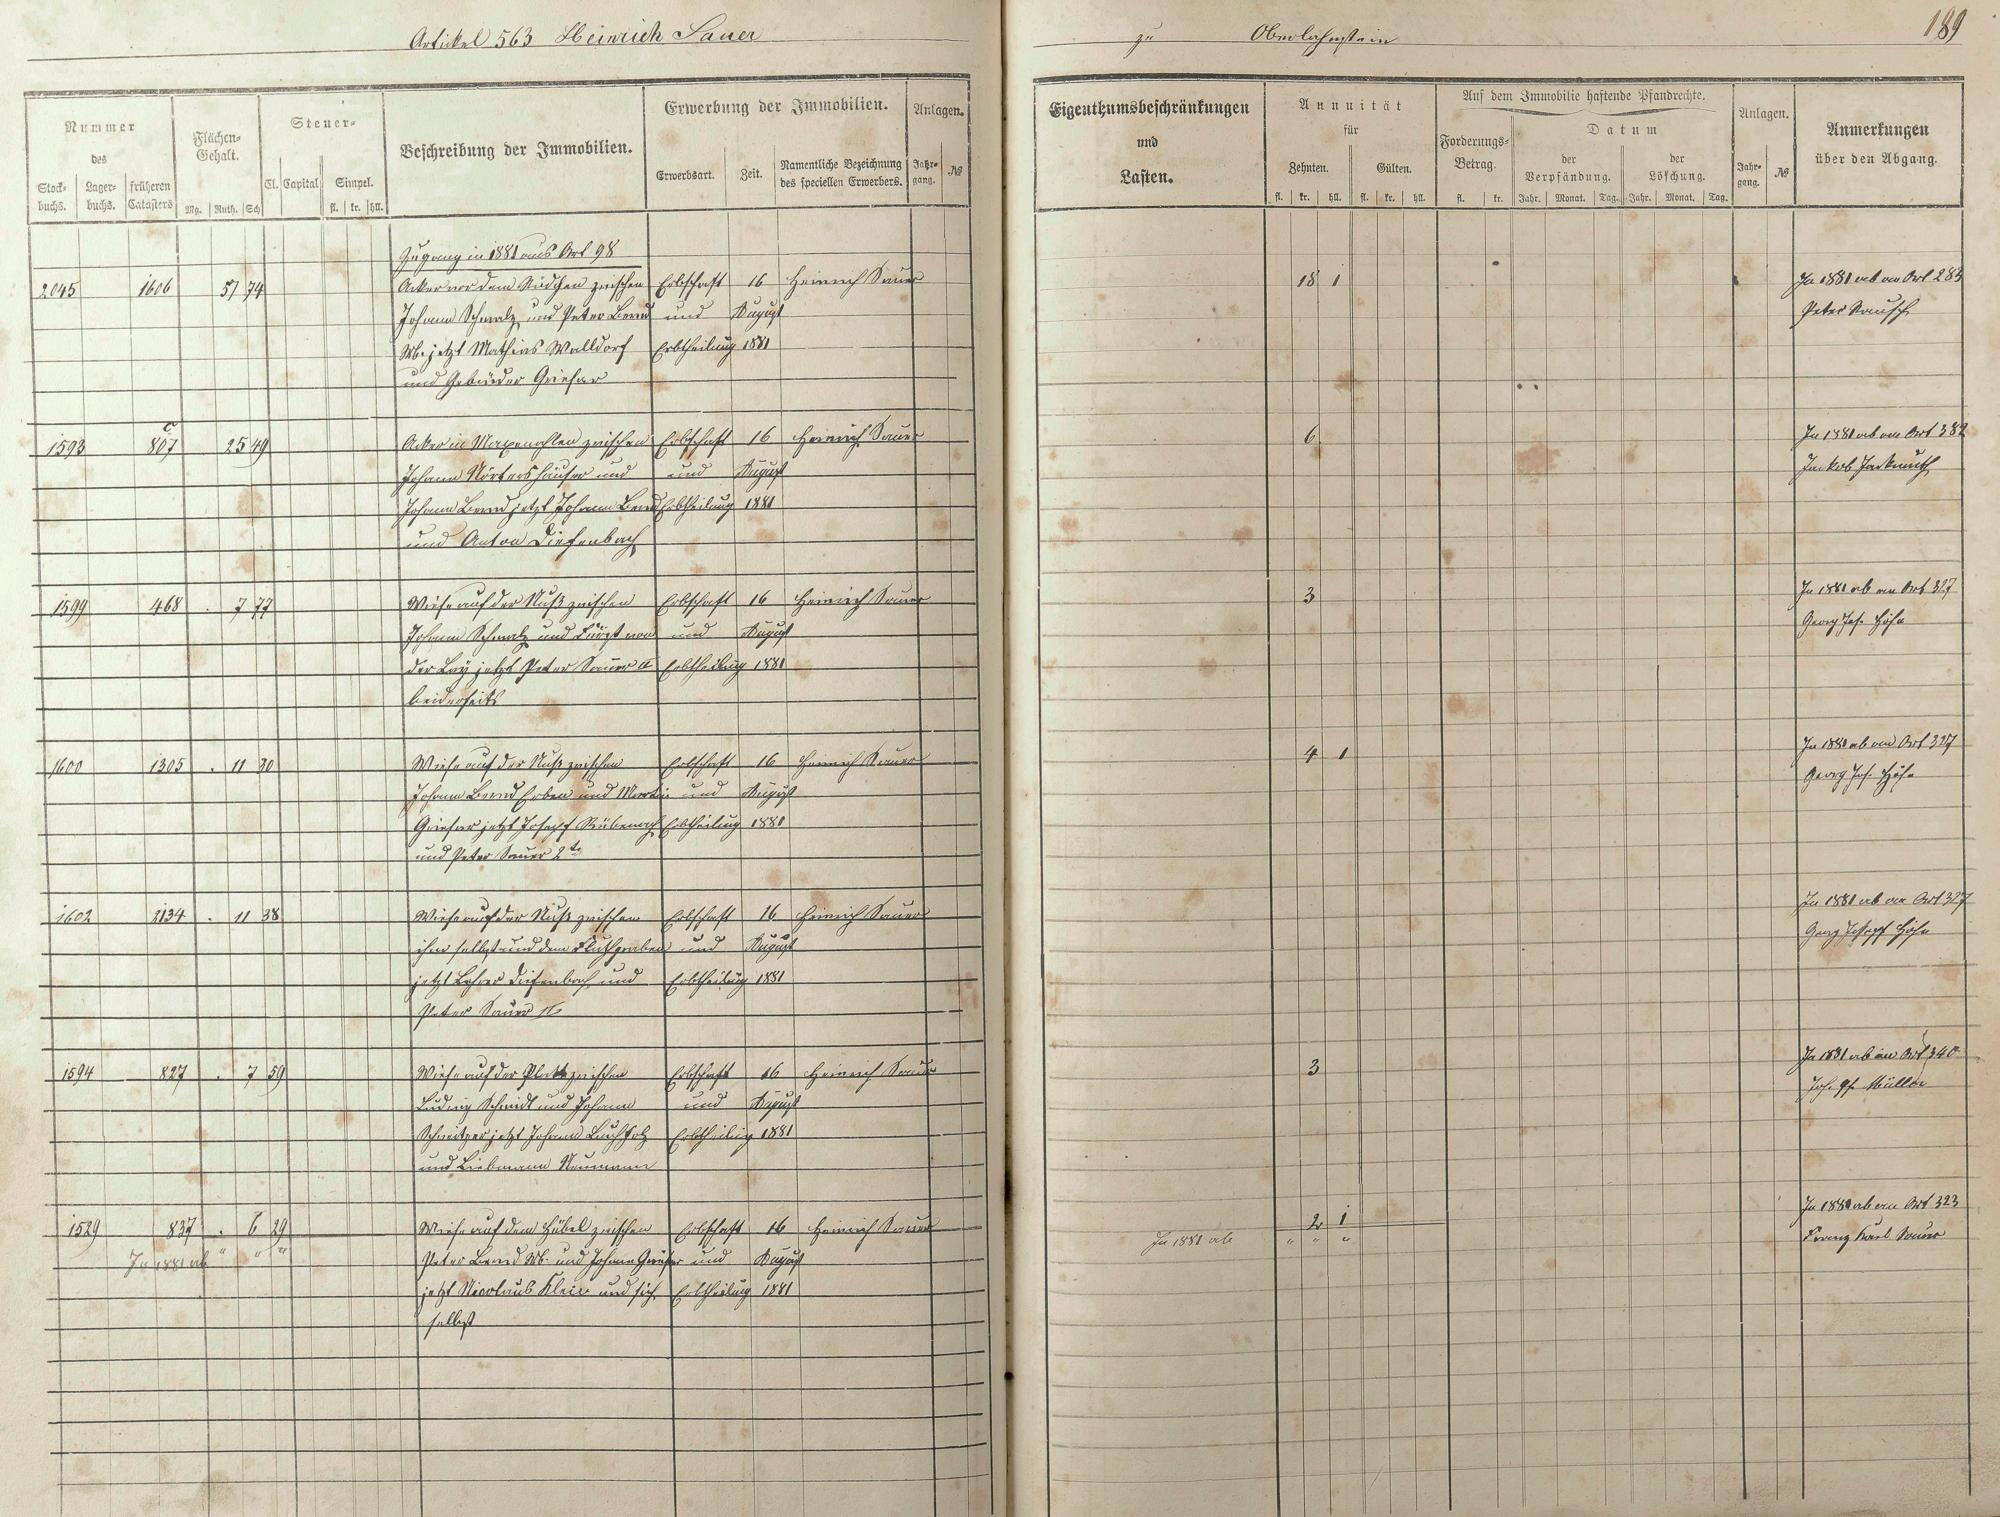 Artikel 563 Heinrich Sauer
zu Oberlahnstein
189
Nummer
des
Stock-buchs.
Lager-buchs.
früheren Catasters
Flächen-Gehalt.
Mg. Ruth. Sch
Steuer-
Cl. Capital Simpel.
fl. kr. hll.
Beschreibung der Immobilien.
Erwerbung der Immobilien.
Erwerbsart. Zeit.
Namentliche Bezeichnung
des speciellen Erwerbers.
Anlagen.
Jahr-gang. №
Eigenthumsbeschränkungen
und
Lasten.
Annuität
für
Zehnten. Gülten.
fl. kr. hll. fl. kr. hll.
Auf dem Immobilie haftende Pfandrechte.
Forderungs-Betrag.
fl. kr.
Datum
der Verpfändung.
Jahr. Monat. Tag.
der Löschung.
Jahr. Monat. Tag.
Anlagen.
Jahr-gang. №
Anmerkungen
über den Abgang.
Zugang in 1881 aus Art 98
2045 1606 57 74 Acker vor dem zwischen Erbschaft 16 Heinrich Sauer 18 1 In 1881 ab an Art 283
Johann Schmalz und Peter Bernd und August Peter
jetzt Mathias Walldorf Erbtheilung 1881
und Gebrüder Griesar
1593 807 c 25 49 Acker in zwischen Erbschaft 16 Heinrich Sauer 6 In 1881 ab an Art 382
Johann Nörtershäuser und und August Jackob
Johann Bernd jetzt Johann Bernd Erbtheilung 1881
und Anton Diefenbach
1599 468 . 7 77 Wiese auf der Nuß zwischen Erbschaft 16 Heinrich Sauer 3 In 1881 ab an Art 327
Johann Schmalz und Fürst von und August Georg Jos. Höhn
der Ley jetzt Peter Sauer II Erbtheilung 1881
beiderseits
1600 1305 . 11 30 Wiese auf der Nuß zwischen Erbschaft 16 Heinrich Sauer 4 1 In 1881 ab an Art 327
Johann Bernd Erben und Martin und August Georg Jos. Höhn
Griesar jetzt Joseph Rübenach Erbtheilung 1881
und Peter Sauer 2te
1602 2134 . 11 38 Wiese auf der Nuß zwischen Erbschaft 16 Heinrich Sauer In 1881 ab an Art 327
ihm selbst und dem Fluthgraben und August Georg Joseph Höhn
jetzt Lehrer Diefenbach und Erbtheilung 1881
Peter Sauer II
1594 827 . 7 59 Wiese auf der Platt zwischen Erbschaft 16 Heinrich Sauer 3 In 1881 ab an Art 340
Ludwig Schmidt und Johann und August Joh. Müller
Schweitzer jetzt Johann Buchholz Erbtheilung 1881
und Liebmann Neumann
1529 837 . 6 29 Wiese auf dem Hübel zwischen Erbschaft 16 Heinrich Sauer 2 1 In 1881 ab an Art 323
In 1881 ab " " " Peter Bernd M. und Johann Griesar und August In 1881 ab " " " Franz Karl Sauer
jetzt Nicolaus Klein und sich Erbtheilung 1881
selbst